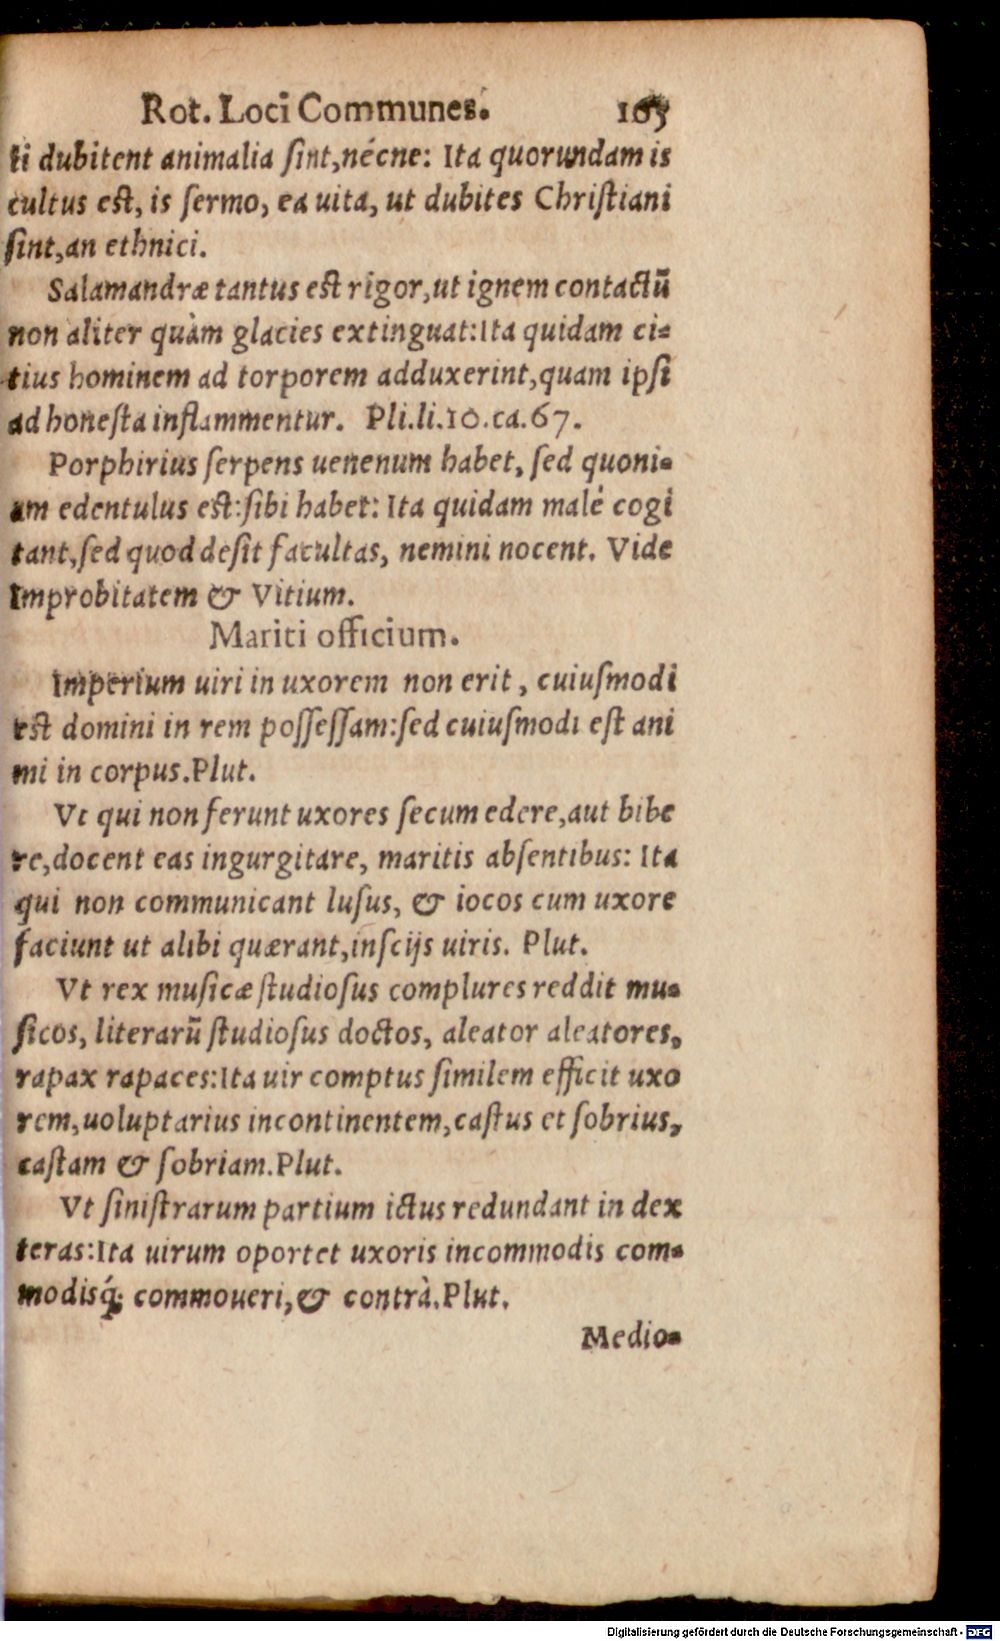 Rot. Loci Communes. 165
ti dubitent animalia ſint,nécne: Ita quorundam is
cultus eſt, is ſermo, ea uita, ut dubites Chriſtiani
ſint,an ethnici.
Salamandræ tantus eſt rigor,ut ignem contactū
non aliter quàm glacies extinguat:Ita quidam ci-
tius hominem ad torporem adduxerint,quam ipſi
ad honeſta inflammentur. Pli.li.10.ca.67.
Porphirius ſerpens uenenum habet, ſed quoni-
am edentulus eſt:ſibi habet: Ita quidam malè cogi
tant,ſed quod deſit facultas, nemini nocent. Vide
Improbitatem & Vitium.
Mariti officium.
Imperium uiri in uxorem non erit, cuiuſmodi
eſt domini in rem poſſeſſam:ſed cuiuſmodi eſt ani
mi in corpus.Plut.
Vt qui non ferunt uxores ſecum edere,aut bibe
re,docent eas ingurgitare, maritis abſentibus: Ita
qui non communicant luſus, & iocos cum uxore
faciunt ut alibi quærant,inſcijs uiris. Plut.
Vt rex muſicæ ſtudioſus complures reddit mu-
ſicos, literarū ſtudioſus doctos, aleator aleatores,
rapax rapaces:Ita uir comptus ſimilem efficit uxo
rem,uoluptarius incontinentem,caſtus et ſobrius,
caſtam & ſobriam.Plut.
Vt ſiniſtrarum partium ictus redundant in dex
teras:Ita uirum oportet uxoris incommodis com-
modisq́; commoueri,& contrà.Plut.
Medio-
Digitalisierung gefördert durch die Deutsche Forschungsgemeinschaft - DFG